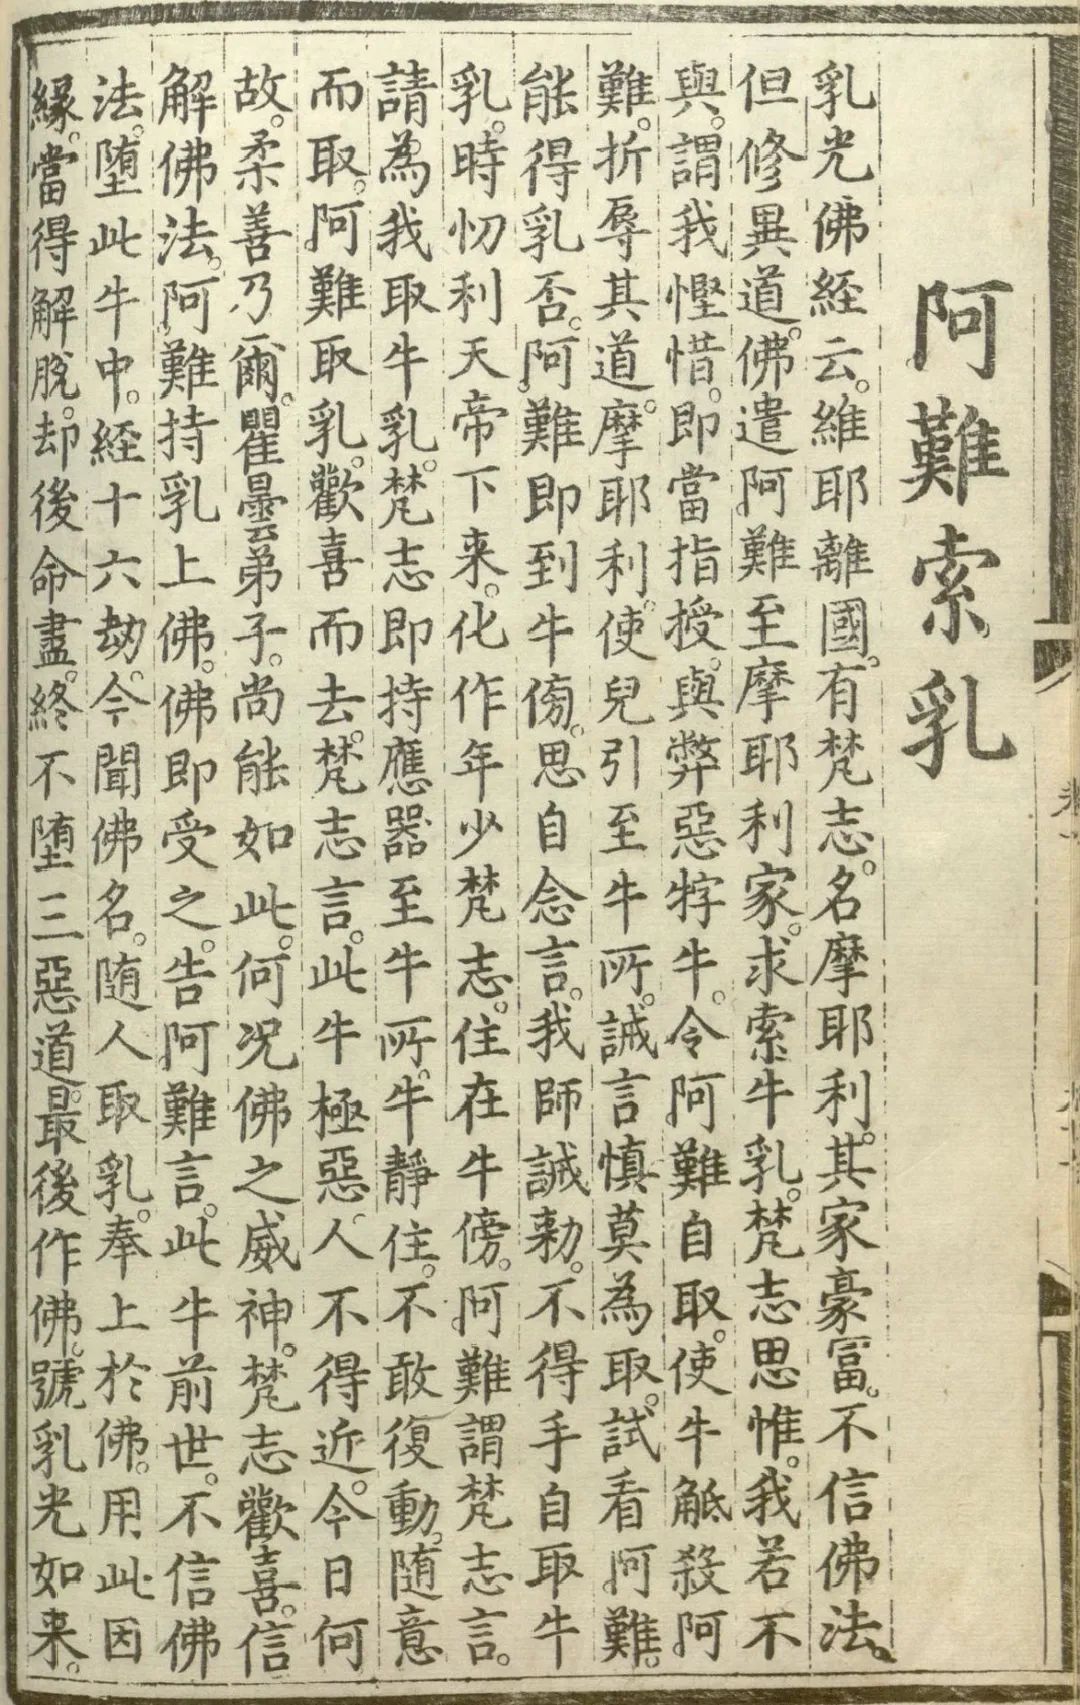 阿難索乳
乳光佛経云。維耶離國。有梵志。名摩耶利。其家豪冨。不信佛法。
但修異道。佛遣阿難至摩耶利家。求索牛乳。梵志思惟。我若不
與。謂我慳惜。即當指授。與弊惡牸牛。令阿難自取。使牛觝殺阿
難。折辱其道。摩耶利。使兒引至牛所。誡言慎莫為取。試看阿難。
能得乳否。阿難即到牛傍。思自念言。我師誡勑。不得手自取牛
乳。時忉利天帝下来。化作年少梵志。住在牛傍。阿難謂梵志言。
請為我取牛乳。梵志即持應器至牛所。牛靜住。不敢復動。随意
而取。阿難取乳。歡喜而去。梵志言。此牛極惡。人不得近。今日何
故。柔善乃爾。瞿曇弟子。尚能如此。何况佛之威神。梵志歡喜。信
解佛法。阿難持乳上佛。佛即受之。告阿難言。此牛前世。不信佛
法。堕此牛中。経十六劫。今聞佛名。随人取乳。奉上於佛。用此因
緣。當得解脱。却後命盡。終不堕三惡道。最後作佛。號乳光如来。
卷一